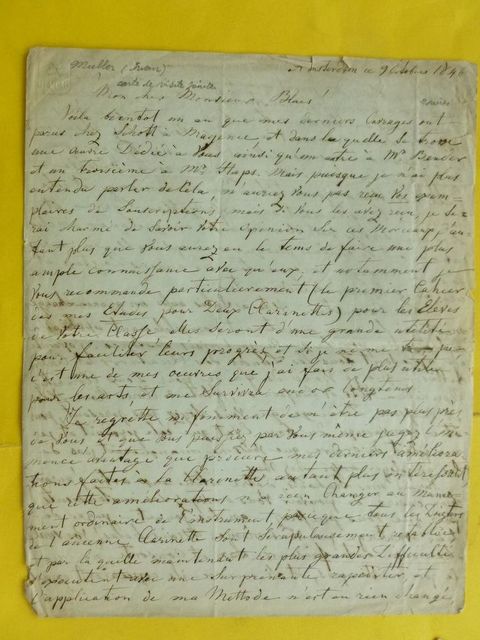 Muller (Iwan)
carte de visite jointe
Amsterdam ce 9 Octobre 184
Mon cher Monsieur Blaes!
Voila bientot un an que mes derniers Ouvrages ont
parus chez Schott a Mayence et dans la quelle se trouve
une Œuvre Dédié a Vous ainsi qu'un autre a Mr Bender
et un troisième a Mr Staps. Mais puisque je n'ai plus
entendu parler de cela n'auriez Vous pas reçu Vos exem-
plaires de Souscriptions, mais si Vous les avez reçu, je se-
rai charmé de savoir Votre Opinion sur ces Morceaux d'au-
tant plus que Vous aurez eu le tems de faire une plus
ample connaissance avec qu'eux, et notamment je
Vous recommande particulierement (le premier Cahier
des mes Etudes pour Deux Clarinettes) pour les Eleves
de Votre Classe elles seront d'une grande utilité
pour faciliter leurs progrès et si je ne me
c'est une de mes oeuvres que j'ai fais de plus utile
pour les arts, et me Survivra encore longtems
Je regrette infiniment de n'être pas plus près
de Vous et que Vous puissiez par Vous même jugez l'im-
mence avantage que procure mes derniers améliora
tions faites a la Clarinette, autant plus
que cette améliorations n'a rien Changer au Manie-
ment ordinaire de l'instrument puisque tous les
de l'ancienne Clarinette sont Scrupuleusement
et par la quelle maintendant les plus grandes Difficultés
s'executent avec une Surprenante et
l'application de ma Methode n'est en rien changé